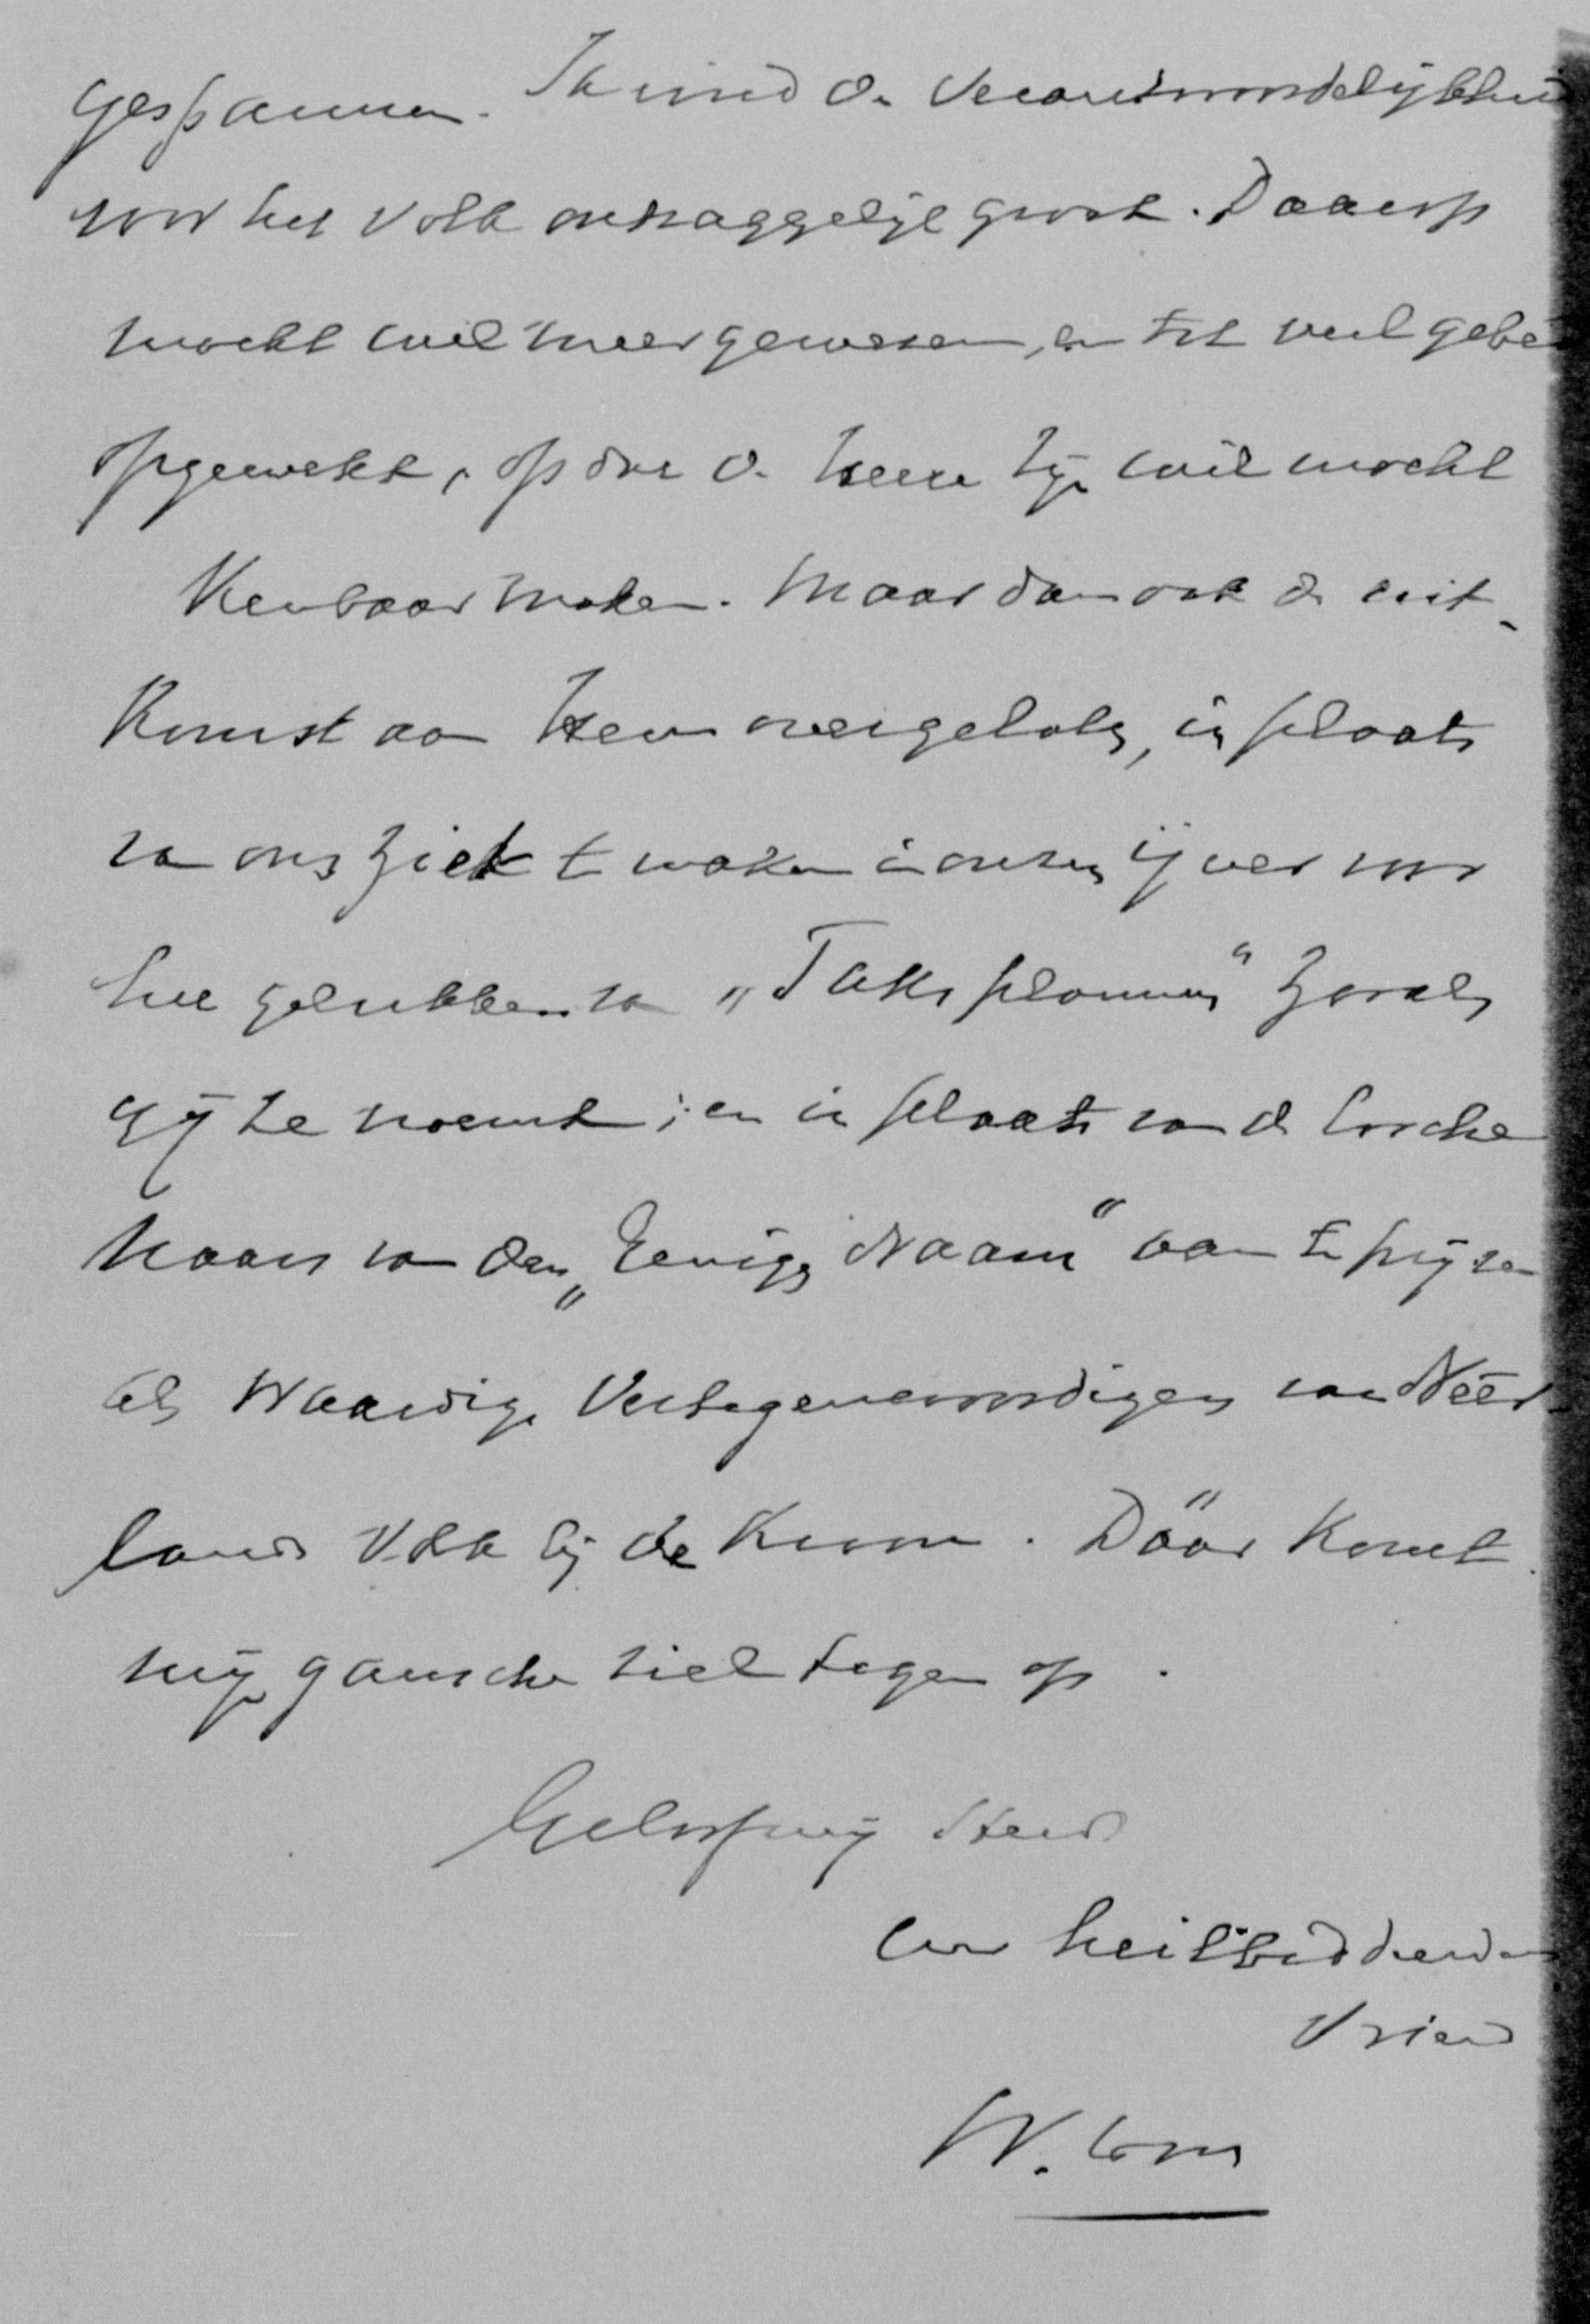 gespannen. Ik vind de verantwoordelijkheid
voor het volk ontzaggelijk groot. Daarop
mocht wel meer gewezen, en tot veel gebed
opgewekt, opdat de Heere Zijn wil mocht
Kenbaar maken. Maar dan ook de uit-
Komst aan Hem overgelaten, in plaats
van ons ziek te maken in onzen ijver voor
het gelukken van „Taks plannen" zooals
gij ze noemt; en in plaats van de
van den „Eenigen Naam" aan te prijzen
als Waardige Vertegenwoordigers van Neêr-
lands Volk bij de Kroon. Dáár Komt
mijn gansche ziel tegen op.
Geloof mij steeds
Uw heilbiddenden
Vriend
W.